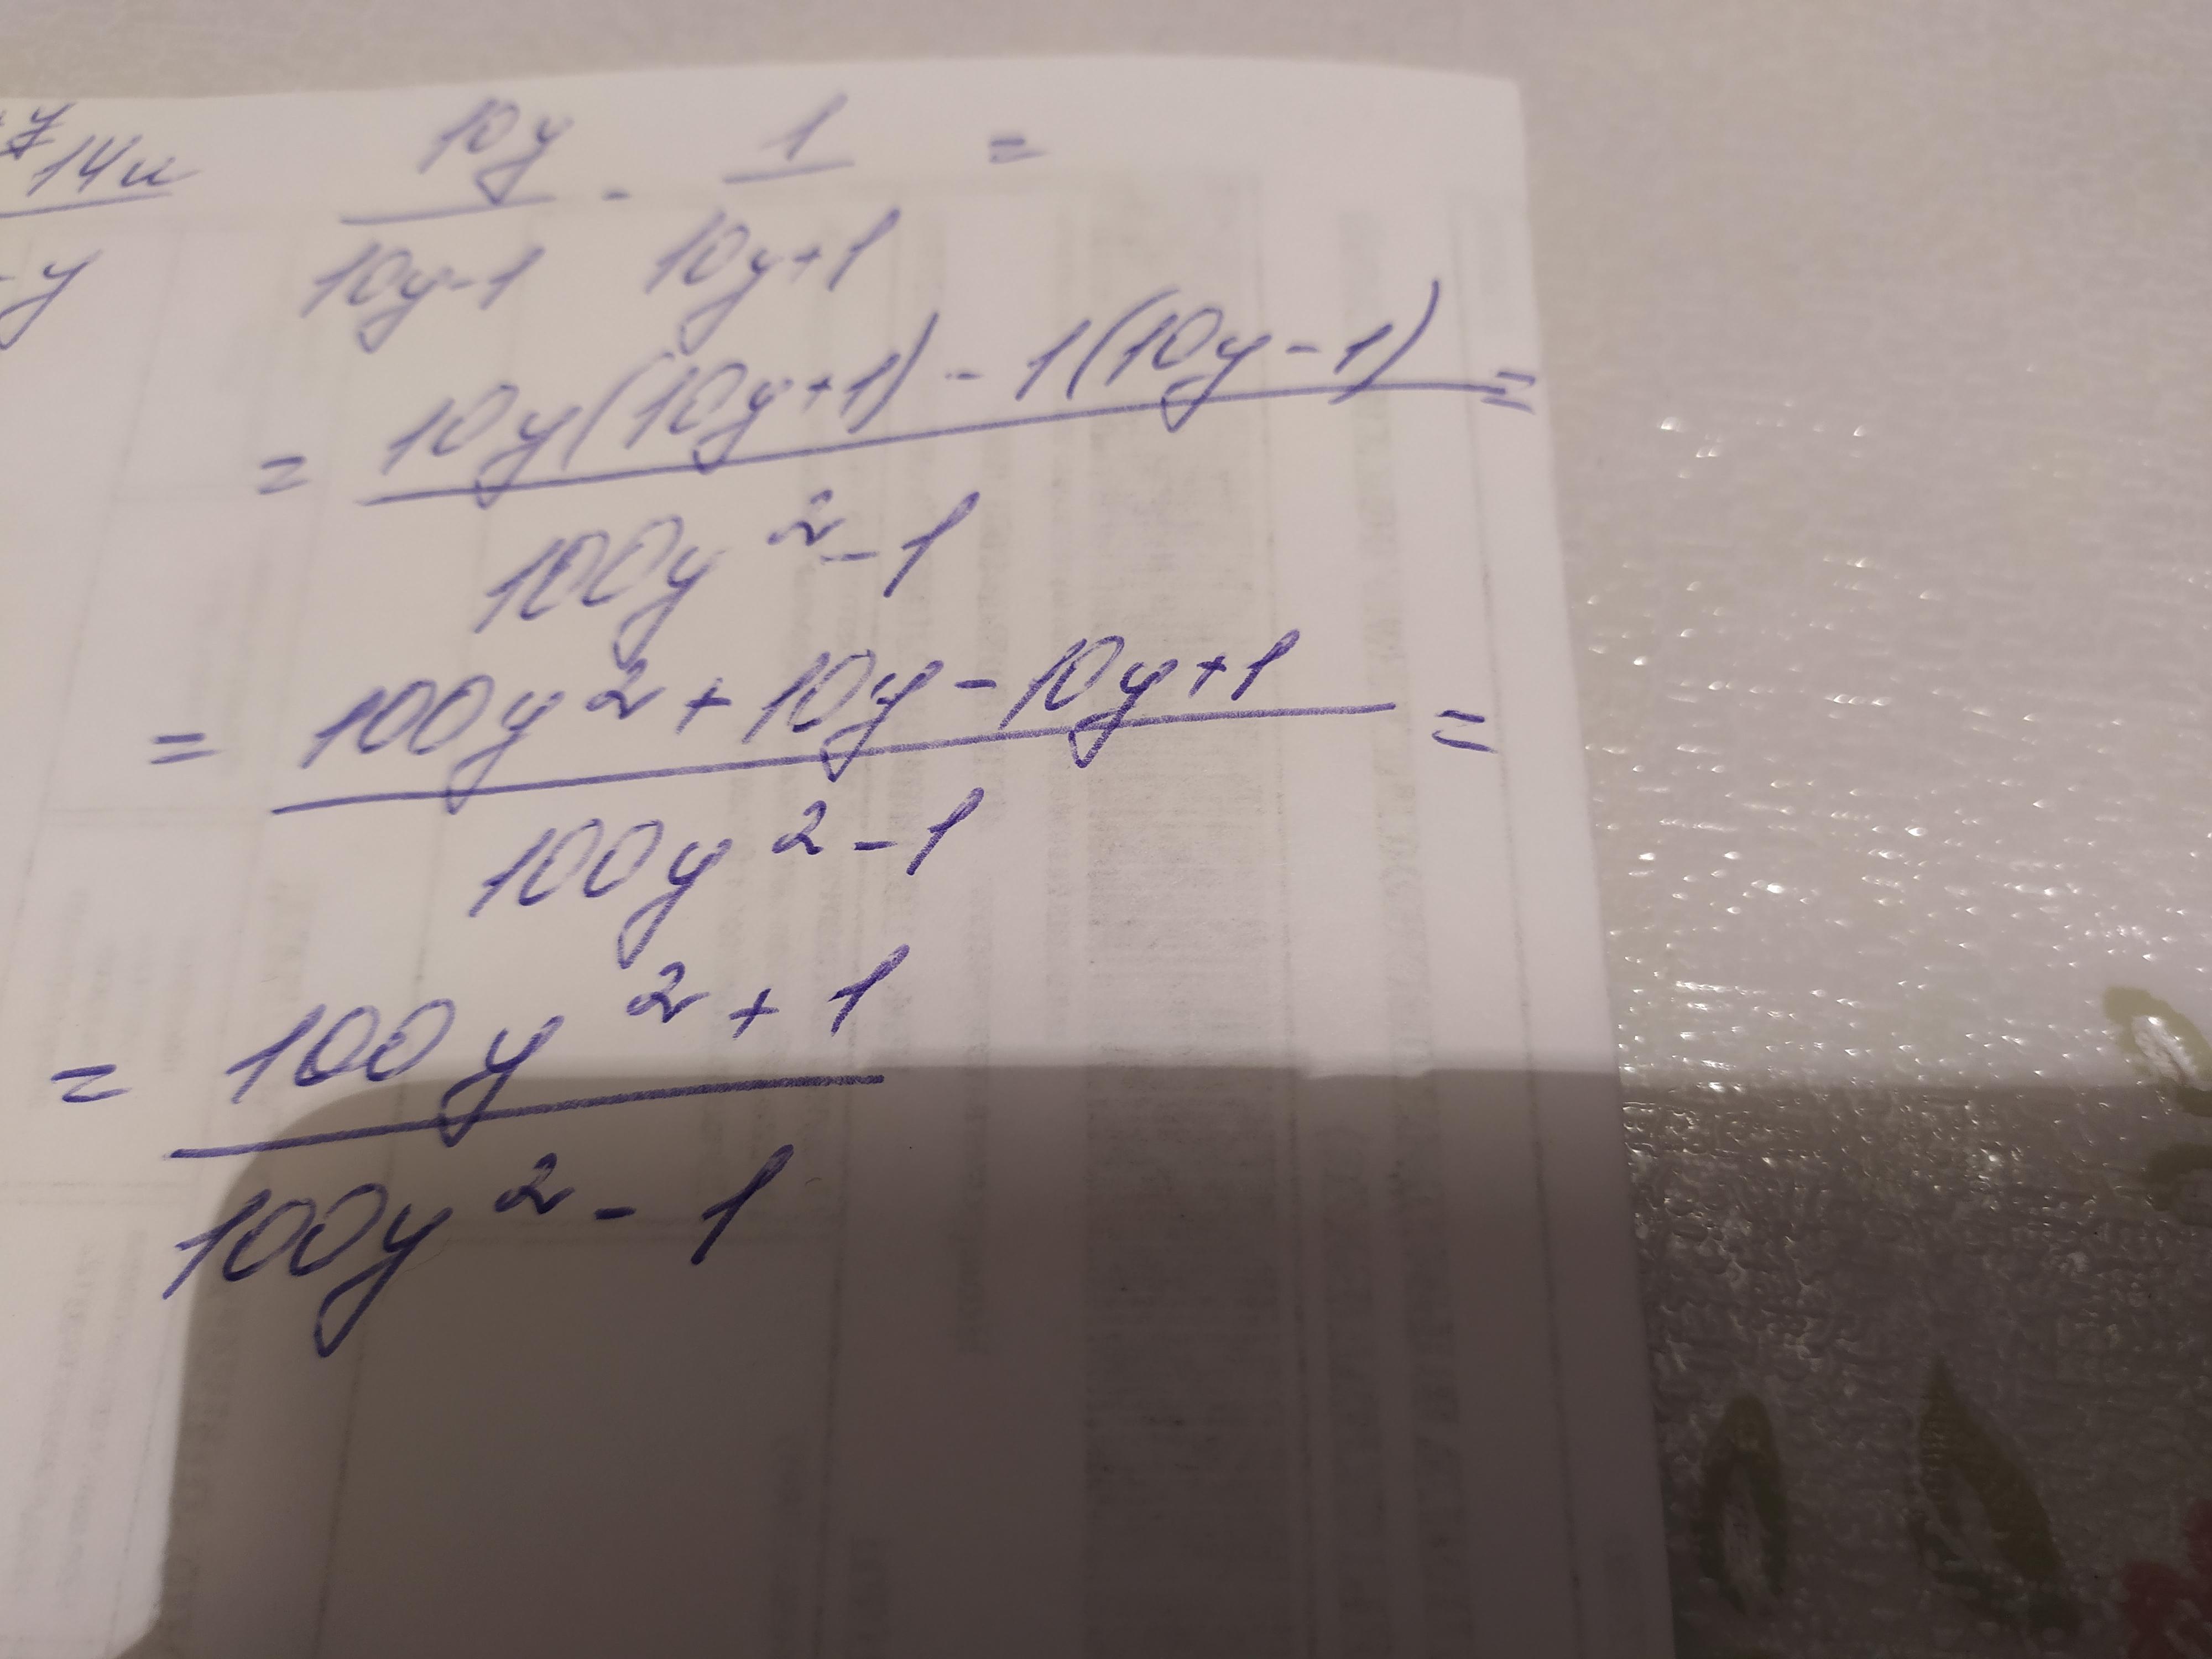 14u
10y 1 =
10y-1 - 10y+1
-y
= 10y(10y+1) - 1(10y-1) =
100y² - 1
= 100y² + 10y - 10y+1 =
100y² - 1
= 100y² + 1
100y² - 1